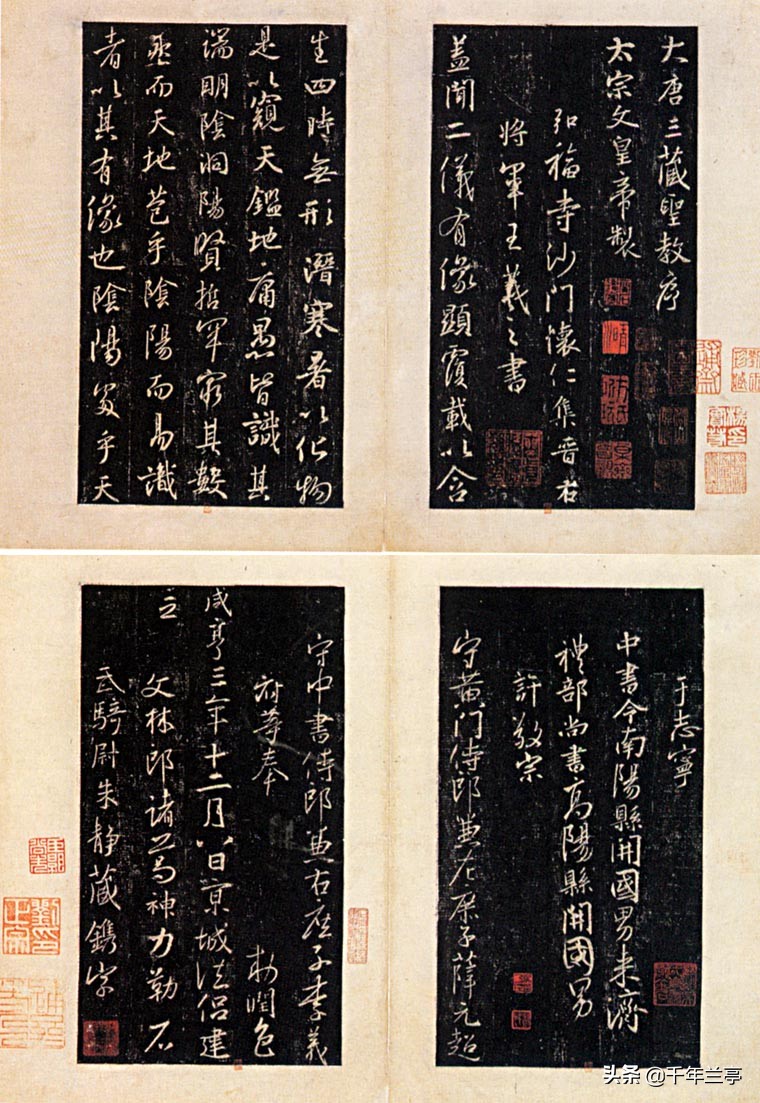 大唐三藏聖教序
太宗文皇帝製
弘福寺沙門懷仁集晉右
將軍王羲之書
蓋聞二儀有像顯覆載以含
生四時無形潛寒暑以化物
是以窺天鑑地庸愚皆識其
端明陰洞陽賢哲罕窮其數
然而天地苞乎陰陽而易識
者以其有像也陰陽處乎天
于志寧
中書令南陽縣開國男来濟
禮部尚書高陽縣開國男
許敬宗
守黄门侍郎兼左庶子薛元超
守中書侍郎兼右庶子李義
府等奉 勅潤色
咸亨三年十二月八日京城法侣建
立
文林郎諸葛神力勒石
武騎尉朱静藏鐫字
头条 @千年兰亭